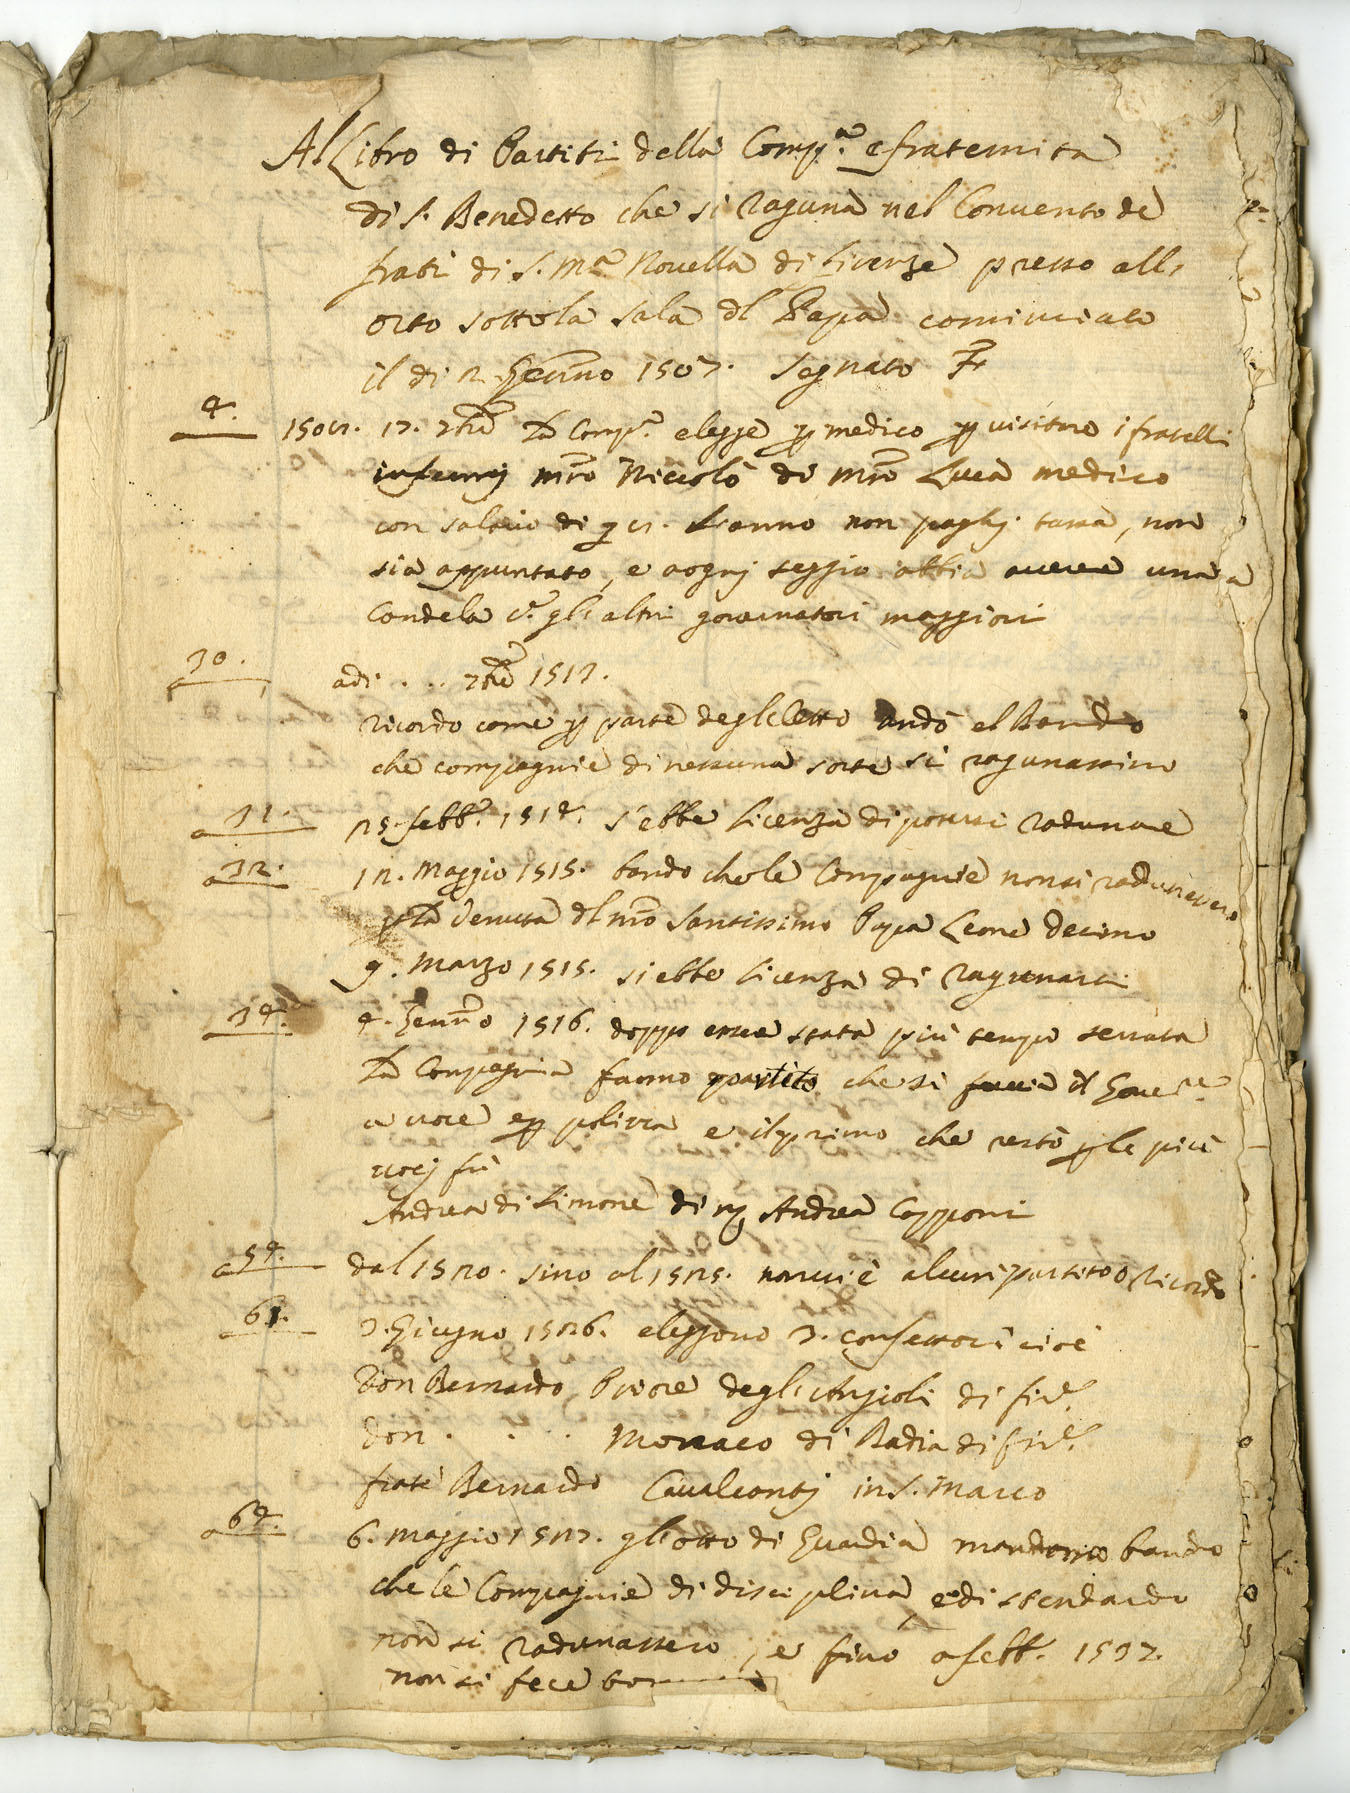 Al Libro di Partiti della Comp.a e fraternita
di S. Benedetto che si raguna nel Convento de
frati di S. Ma Novella di Firenze presso all'
orto sotto la sala dl Papa cominciato
il di 2 Genno 1507. Segnato F
4.
17. 7bre la Comp.a elegge p medico p visitare i fratelli
infermj mro Niccolò di mro Luca medico
con salario di l'anno non paghj tassa, non
sia appuntato, e aognj seggio abbia avere una
Candela c.e gli altri governatori maggiori
30.
adi . . . 7bre 1513.
ricordo come p parte degl'eletto andò el Bando
che compagnie di nessuna sorte si ragunassino
31.
25. febb.o 1514. s'ebbe licenza di potersi radunare
32.
12. Maggio 1515. bando che le Compagnie non si radunassero
p la venuta dl nro Santissimo Papa Leone decimo
9. Marzo 1515. si ebbe licenza di ragunarsi
34.
4. Genno 1516. doppo essere stata più tempo serrata
la Compagnia fanno partito che si faccia il Gover.re
a voce e p polizza e il primo che restò p le più
vocj fù
Andrea di Simone di Andrea Capponi
54.
dal 1520. sino al 1525. non vi è alcun partito o Ricordo
61.
3. Giugno 1526. elessono 3. confessori cioè
Don Bernardo Priore degl'Angioli di fir.e
Don . . . Monaco di Badia di fir.e
frate Bernardo Cavalcantj in S. Marco
64.
6. Maggio 1527. gl'otto di Guardia mandorno bando
che le Compagnie di disciplina, e di stendardo
non si radunassero, e fino a febb. 1532.
non si fece